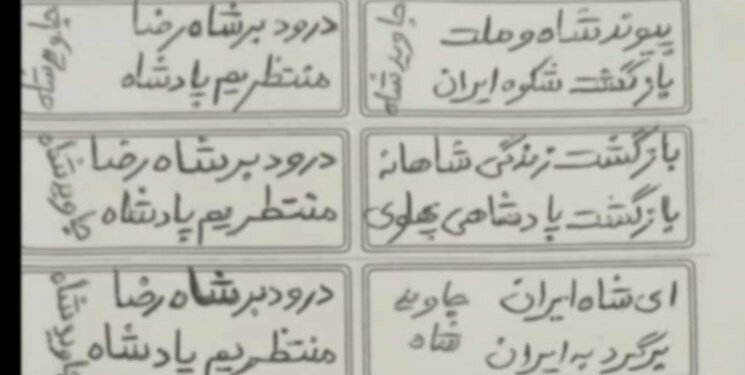 پیوند شاه و ملت
بازگشت شکوه ایران
جاوید شاه
درود بر شاه رضا
منتظریم پادشاه
جاوید شاه
بازگشت زندگی شاهانه
بازگشت پادشاهی پهلوی
درود بر شاه رضا
منتظریم پادشاه
جاوید شاه
ای شاه ایران
برگرد به ایران
جاوید
شاه
درود بر شاه رضا
منتظریم پادشاه
جاوید شاه